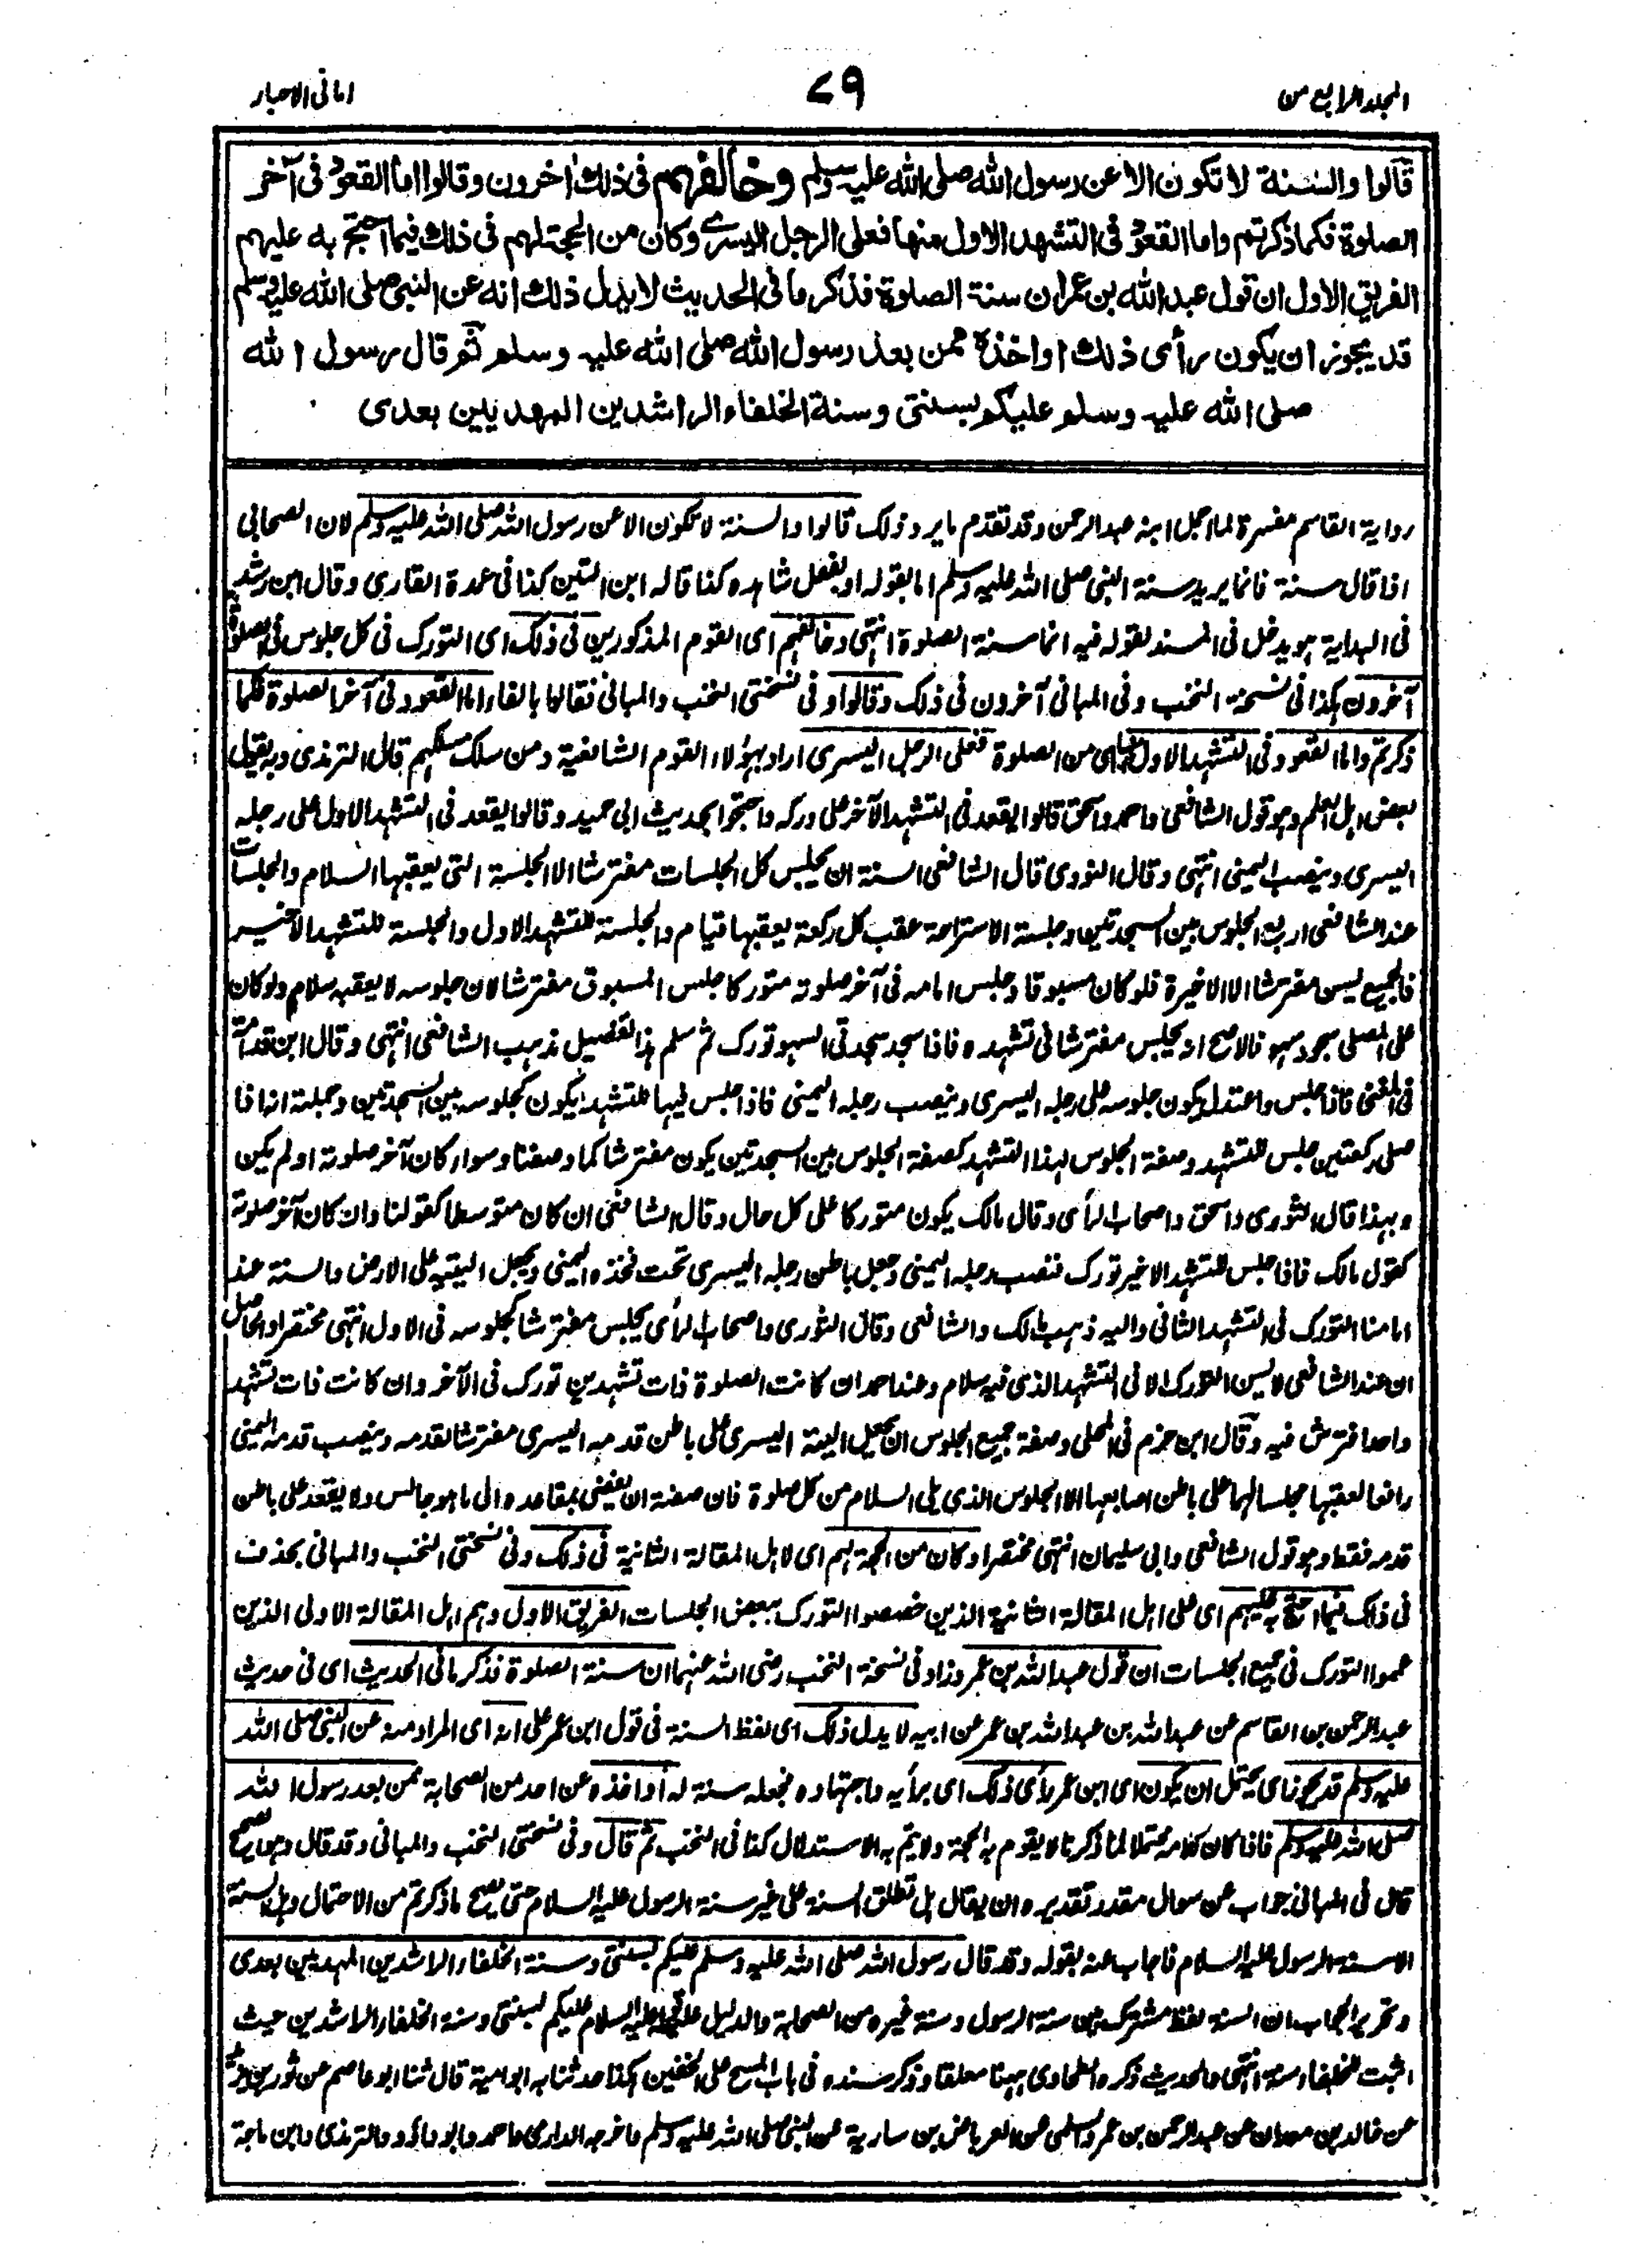 المجلد الرابع من
٧٩
امانی الاحبار
قالوا والسنة لا تكون الا عن رسول الله صلى الله عليه وسلم وخالفهم فى ذلك اخرون وقالوا اما القعود فى آخر
الصلوة فكما ذكرتم واما القعود فى التشهد الاول منها فعلى الرجل اليسرى وكان من الحجة لهم فى ذلك فيما احتج به عليهم
الفريق الاول ان قول عبد الله بن عمر ان سنة الصلوة فذكر ما فى الحديث لا يدل ذلك انه عن النبى صلى الله عليه وسلم
قد يجوز ان يكون رأى ذلك او اخذه ممن بعد رسول الله صلى الله عليه وسلم ثم قال رسول الله
صلى الله عليه وسلم عليكم بسنتى وسنة الخلفاء الراشدين المهديين بعدى
رواية القاسم مفسرة لما اجمل ابنه عبد الرحمن وقد تقدم ما يرد ذلك قالوا والسنة لا تكون الا عن رسول الله صلى الله عليه وسلم لان الصحابى
اذا قال سنة فانما يريد سنة النبى صلى الله عليه وسلم اما بقوله او بفعل شاهده كذا قاله ابن التين كذا فى عمدة القارى وقال ابن رشد
فى البداية هو يدخل فى المسند لقوله فيه انما سنة الصلوة انتهى وخالفهم اى القوم المذكورين فى ذلك اى التورك فى كل جلوس فى الصلوة
آخرون هكذا فى نسخة النخب وفى المبانى آخرون فى ذلك وقالوا وفى نسختى النخب والمبانى فقالوا بالفاء اما القعود فى آخر الصلوة فكما
ذكرتم واما القعود فى التشهد الاول منها اى من الصلوة فعلى الرجل اليسرى اراد بهؤلاء القوم الشافعية ومن سلك مسلكهم قال الترمذى وبه يقول
بعض اهل العلم وهو قول الشافعى واحمد واسحق قالوا يقعد فى التشهد الآخر على وركه واحتجوا بحديث ابى حميد وقالوا يقعد فى التشهد الاول على رجله
اليسرى وينصب اليمنى انتهى وقال النووى قال الشافعى السنة ان يجلس كل الجلسات مفترشا الا الجلسة التى يعقبها السلام والجلسات
عند الشافعى اربع الجلوس بين السجدتين وجلسة الاستراحة عقب كل ركعة يعقبها قيام والجلسة للتشهد الاول والجلسة للتشهد الاخير
فالجميع يسن مفترشا الا الاخيرة فلو كان مسبوقا وجلس امامه فى آخر صلوته متوركا جلس المسبوق مفترشا لان جلوسه لا يعقبه سلام ولو كان
على المصلى سجود سهو فالاصح انه يجلس مفترشا فى تشهده فاذا سجد سجدتى السهو تورك ثم سلم هذا تفصيل مذهب الشافعى انتهى وقال ابن قدامة
فى المغنى فاذا جلس واعتدل يكون جلوسه على رجله اليسرى وينصب رجله اليمنى فاذا جلس فيها للتشهد يكون كجلوسه بين السجدتين وجملته انه اذا
صلى ركعتين جلس للتشهد وصفة الجلوس لهذا التشهد كصفة الجلوس بين السجدتين يكون مفترشا كما وصفنا وسواء كان آخر صلوته او لم يكن
وبهذا قال الثورى واسحق واصحاب الرأى وقال مالك يكون متوركا على كل حال وقال الشافعى ان كان متوسطا كقولنا وان كان آخر صلوته
كقول مالك فاذا جلس للتشهد الاخير تورك فنصب رجله اليمنى وجعل باطن رجله اليسرى تحت فخذه اليمنى ويجعل اليتيه على الارض والسنة عند
امامنا التورك فى التشهد الثانى واليه ذهب مالك والشافعى وقال الثورى واصحاب الرأى يجلس مفترشا كجلوسه فى الاول انتهى مختصرا والحاصل
ان عند الشافعى لا يسن التورك الا فى التشهد الذى فيه سلام وعند احمد ان كانت الصلوة ذات تشهدين تورك فى الآخر وان كانت ذات تشهد
واحد افترش فيه وقال ابن حزم فى المحلى وصفة جميع الجلوس ان يجعل الية اليسرى على باطن قدمه اليسرى مفترشا لقدمه وينصب قدمه اليمنى
رافعا لعقبها مجلسا لها على باطن اصابعها الا الجلوس الذى يلى السلام من كل صلوة فان صفته ان يفضى بمقاعده الى ما هو جالس ولا يقعد على باطن
قدمه فقط وهو قول الشافعى وابى سليمان انتهى مختصرا وكان من الحجة لهم اى لاهل المقالة الثانية فى ذلك وفى نسختى النخب والمبانى بحذف
فى ذلك فيما احتج به عليهم اى على اهل المقالة الثانية الذين خصصوا التورك ببعض الجلسات الفريق الاول وهم اهل المقالة الاولى الذين
عمموا التورك فى جميع الجلسات ان قول عبد الله بن عمر وزاد فى نسخة النخب رضى الله عنهما ان سنة الصلوة فذكر ما فى الحديث اى فى حديث
عبد الرحمن بن القاسم عن عبد الله بن عبد الله بن عمر عن ابيه لا يدل ذلك اى لفظ السنة فى قول ابن عمر على انه اى المراد منه عن النبى صلى الله
عليه وسلم قد يجوز اى يحتمل ان يكون اى ابن عمر رأى ذلك اى برأيه واجتهاده فجعله سنة له او اخذه عن احد من الصحابة ممن بعد رسول الله
صلى الله عليه وسلم فاذا كان كلامه محتملا لما ذكرنا لا يقوم به الحجة ولا يتم به الاستدلال كذا فى النخب ثم قال وفى نسختى النخب والمبانى وقد قال
قال فى المبانى جواب عن سوال مقدر تقديره ان يقال هل تطلق السنة على غير سنة الرسول عليه السلام حتى يصح ما ذكرتم من الاحتمال وهل السنة
الا سنة الرسول عليه السلام فاجاب عنه بقوله وقد قال رسول الله صلى الله عليه وسلم عليكم بسنتى وسنة الخلفاء الراشدين المهديين بعدى
وتحرير الجواب ان السنة لفظ مشترك بين سنة الرسول وسنة غيره من الصحابة والدليل عليه قوله عليه السلام عليكم بسنتى وسنة الخلفاء الراشدين حيث
اثبت للخلفاء سنة انتهى والحديث ذكره الطحاوى ههنا معلقا وذكر سنده فى باب المسح على الخفين هكذا حدثنا به ابو امية قال ثنا ابو عاصم عن ثور بن يزيد
عن خالد بن معدان عن عبد الرحمن بن عمرو السلمى عن العرباض بن سارية عن النبى صلى الله عليه وسلم واخرجه الدارمى واحمد وابو داؤد والترمذى وابن ماجة